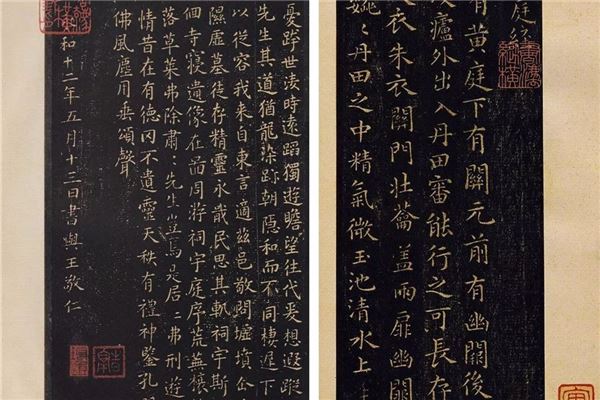 憂跨世淩時遠蹈獨遊瞻望往代爰想遐蹤
先生其道猶龍染跡朝隱和而不同棲遲下
以從容我來自東言適茲邑敬問墟墳企
隰虛墓徒存精靈永戢民思其軌祠宇斯
佪寺寢遺像在啚周游祠宇庭序荒蕪榱
落草萊弗除肅:先生豈焉是居:弗刑遊
情昔在有德罔不遺靈天秩有禮神鑒孔
佛風塵用垂頌聲
和十二年五月十三日書與王敬仁
庭經
有黃庭下有關元前有幽闕後
廬外出入丹田審能行之可長存
衣朱衣關門壯蘥蓋兩扉幽闕
:丹田之中精氣微玉池清水上